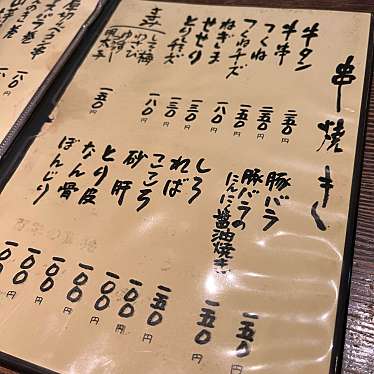 串焼き
牛タン 二五〇円
牛串 二五〇円
つくね 一五〇円
つくねチーズ 一八〇円
ねぎま 一三〇円
せせり 一三〇円
とりチーズ 一八〇円
しそ梅
わさび
明太子
一五〇円
豚バラ 一五〇円
豚バラの
にんにく醤油焼き 一五〇円
しろ 一五〇円
ればー 一五〇円
こころ 一〇〇円
砂肝 一〇〇円
とり皮 一〇〇円
なん骨 一〇〇円
ぼんじり 一〇〇円